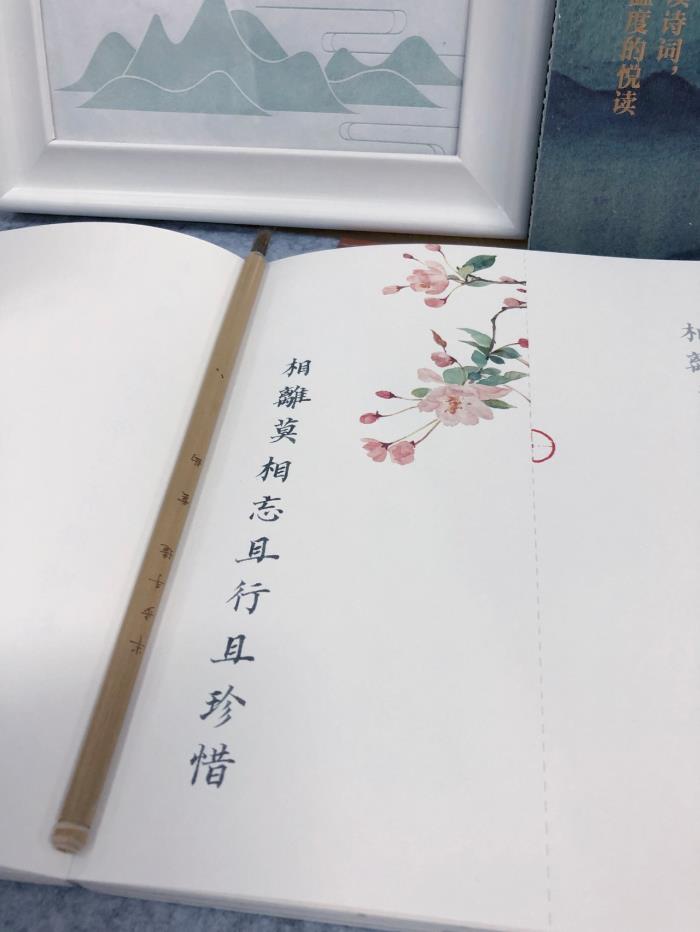 读诗词，
温度的悦读
相離莫相忘且行且珍惜
相離